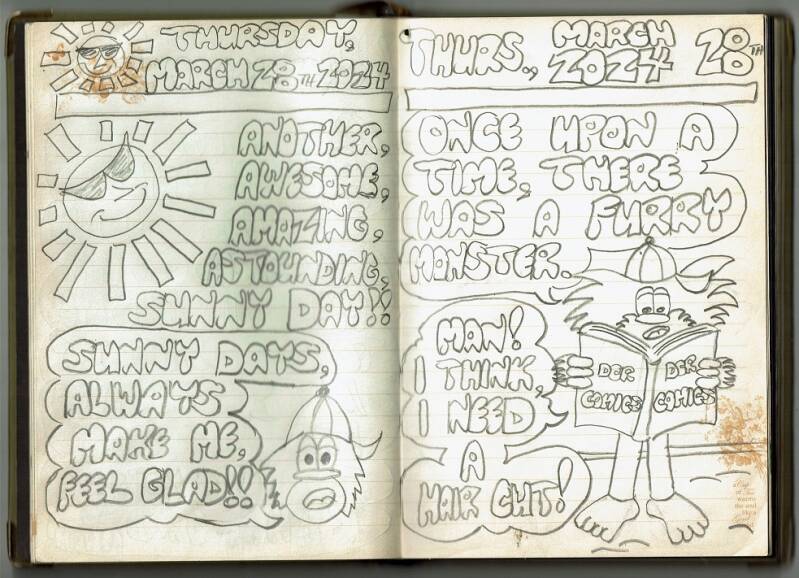 THURSDAY,
MARCH 28TH 2024
ANOTHER,
AWESOME,
AMAZING,
ASTOUNDING,
SUNNY DAY!!
SUNNY DAYS,
ALWAYS
MAKE ME,
FEEL GLAD!!
THURS., MARCH 2024 28TH
ONCE UPON A
TIME, THERE
WAS A FURRY
MONSTER.
MAN!
I THINK,
I NEED
A
HAIR CUT!
DCR COMICS
DCR COMICS
a Cup
of Tea
warms
the soul
like a